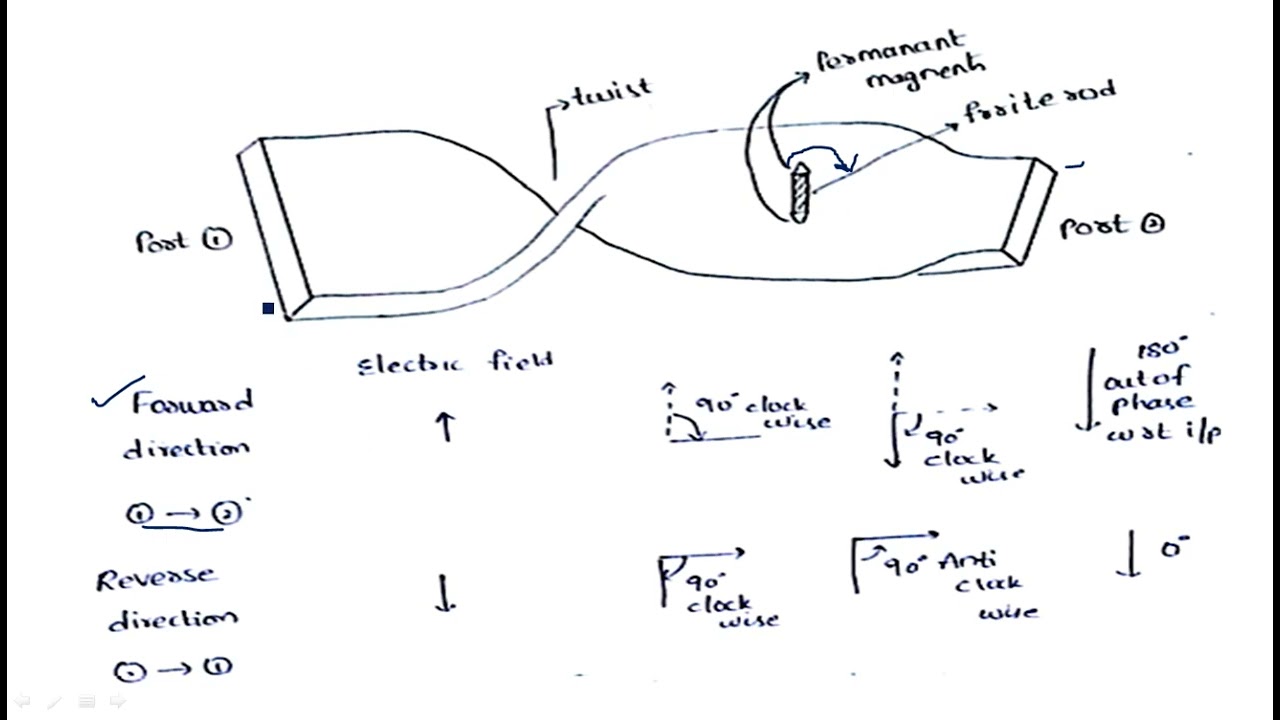 Permanant
magnents
twist
frrite rod
Port ①
Port ②
Electric field
Forward
direction
① → ②
90° clock
wise
90°
clock
wise
180°
out of
phase
wrt i/p
Reverse
direction
② → ①
90°
clock
wise
90° Anti
clock
wise
0°